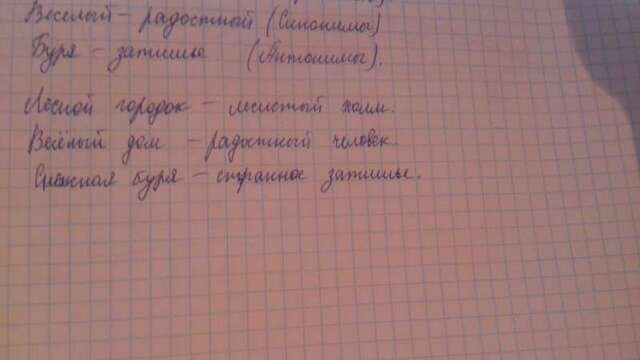 Веселый – радостный (Синонимы)
Буря – затишье (Антонимы).
Лесной городок – лесистый холм.
Весёлый дом – радостный человек.
Снежная буря – странное затишье.